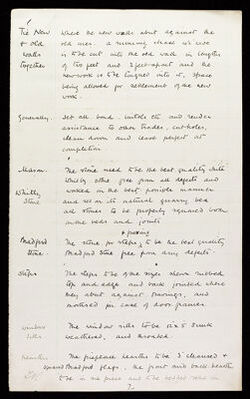 Tie New
& old
walls
together
Where the new walls abut against the
old ones. a running chase 4½" wide
is to be cut into the old wall in lengths
of two feet and 2 feet apart and the
new work is to be toothed into it, space
being allowed for settlement of the new
work.
Generally.
Set all bond timbers etc and render
assistance to other trades, cut holes,
clean down and leave perfect at
completion
Mason.
Whitby
Stone
The stone used to be the best quality
Whitby stone free from all defects and
worked in the best possible manner
and set on its natural quarry bed
all stones to be properly squared
beds and joints
& paving
Bradford
Stone.
The stone for steps to be the best quality
Bradford stone free from any defects.
Steps
The steps to be of the sizes shown rubbed
top and edge and back jointed where
they abut against pavings, and
mortised in case of door frames.
window
sills
The window sills to be sunk
weathered, and throated.
hearths
The fireplace hearths to be 3" cleaned &
squared Bradford flags. the front and back hearths
to be in one piece and to be bedded
7